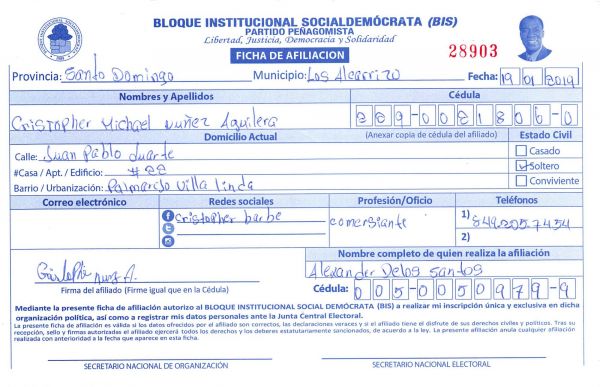 BLOQUE INSTITUCIONAL SOCIALDEMÓCRATA (BIS)
PARTIDO PEÑAGOMISTA
Libertad, Justicia, Democracia y Solidaridad
FICHA DE AFILIACION
28903
Provincia: Santo Domingo Municipio: Los Alcarrizo Fecha: 19/01/2019
Nombres y Apellidos Cédula
Cristopher Michael Nuñez Aguilera
Domicilio Actual (Anexar copia de cédula del afiliado) Estado Civil
Calle: Juan Pablo Duarte Casado
#Casa / Apt. / Edificio: #22 Soltero
Barrio / Urbanización: Palmarejo Villa Linda Conviviente
Correo electrónico Redes sociales Profesión/Oficio Teléfonos
cristopher barbe comersiante 1) 849.205.7454
2)
Nombre completo de quien realiza la afiliación
Alexander Delos Santos
Firma del afiliado (Firme igual que en la Cédula) Cédula: 005-0050979-9
Mediante la presente ficha de afiliación autorizo al BLOQUE INSTITUCIONAL SOCIAL DEMÓCRATA (BIS) a realizar mi inscripción única y exclusiva en dicha
organización política, así como a registrar mis datos personales ante la Junta Central Electoral.
La presente ficha de afiliación es válida si los datos ofrecidos por el afiliado son correctos, las declaraciones veraces y si el titular tiene el disfrute de sus derechos civiles y políticos. Tras su
recepción, sello y firmas autorizadas el afiliado ejercerá todos los derechos y los deberes estatutariamente sancionados, de acuerdo a la ley. La presente afiliación anula cualquier afiliación
realizada con anterioridad a la fecha que aparece en esta ficha.
SECRETARIO NACIONAL DE ORGANIZACIÓN SECRETARIO NACIONAL ELECTORAL